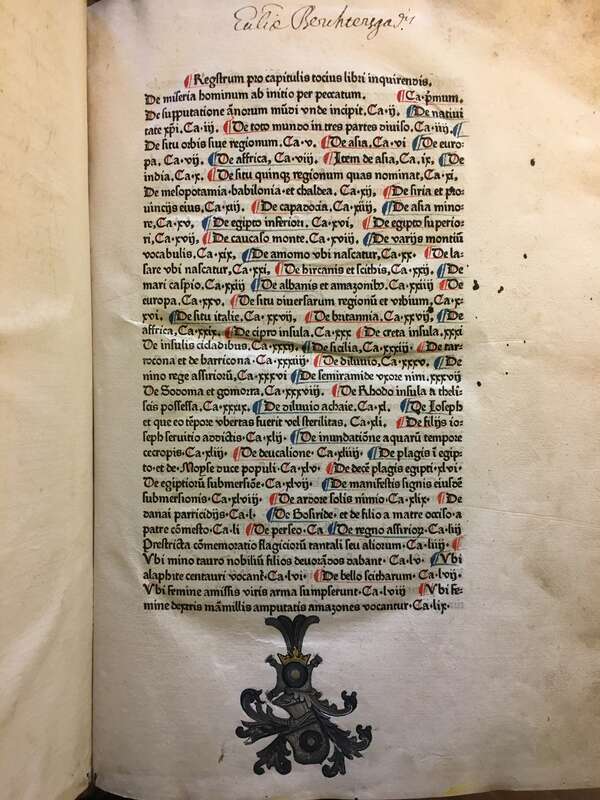 ¶Regstrum pro capitulis tocius libri inquirendis.
De miseria hominum ab initio per peccatum. ¶Ca·p̄mum.
De supputatione ānorum mūdi vnde incipit, Ca·ij. ¶De natiui
tate xp̄i, Ca·iij. ¶De toto mundo in tres partes diuiso, Ca·iiij, ¶
De situ orbis siue regionum, Ca·v. ¶De asia, Ca·vi ¶De euro-
pa, Ca·vij, ¶De affrica, Ca·viij. ¶Item de asia, Ca,ix, ¶De
india, Ca·x. ¶De situ quinqȝ regionum quas nominat, Ca·xi,
De mesopotamia·babilonia·et chaldea. Ca·xij, ¶De siria et pro
uincijs eius, Ca·xiij, ¶De capadocia, Ca·xiiij, ¶De asia mino-
re, Ca·xv, ¶De egipto inferiori, Ca·xvi, ¶De egipto superio-
ri, Ca·xvij, ¶De caucaso monte, Ca·xviij, ¶De varijs montiū
vocabulis, Ca·xix, ¶De amomo vbi nascatur, Ca·xx· ¶De la-
sare vbi nascatur, Ca·xxi, ¶De hircanis et scithis, Ca·xxij, ¶De
mari caspio, Ca·xxiij ¶De albanis et amazonibꝰ, Ca·xxiiij ¶De
europa, Ca·xxv, ¶De situ diuersarum regionū et vrbium, Ca·x-
xvi, ¶De situ italie, Ca·xxvij, ¶De britannia, Ca·xxviij, ¶De
affrica, Ca·xxix, ¶De cipro insula, Ca·xxx ¶De creta insula, xxxi
De insulis cicladibus, Ca·xxxij, ¶De sicilia, Ca·xxxiij· ¶De tar-
rocona et de barricona, Ca·xxxiiij ¶De diluuio, Ca·xxxv, ¶De
nino rege assiriorū, Ca·xxxvi ¶De semiramide vxore nini, xxxvij
De Sodoma et gomorra, Ca·xxxviij, ¶De Rhodo insula a theli-
scis possessa, Ca·xxxix, ¶De diluuio achaie, Ca·xl. ¶De Ioseph
et que eo tēpore vbertas fuerit vel sterilitas, Ca·xli, ¶De filijs io-
seph seruitio addictis Ca·xlij· ¶De inundatiōne aquarū tempore
cecropis, Ca·xliij· ¶De deucalione· Ca·xliiij· ¶De plagis ī egip-
to·et de·Moyse duce populi·Ca·xlv· ¶De decē plagis egipti·xlvi·
De egiptiorū submersiōe· Ca·xlvij· ¶De manifestis signis eiusdē
submersionis·Ca·xlviij· ¶De ardore solis nimio·Ca·xlix· ¶De
danai parricidijs, Ca·l· ¶De Bosiride·et de filio a matre occiso·a
patre cōmesto·Ca·li ¶De perseo·Ca ¶De regno assiriorꝝ·Ca·liij
Prestricta cōmemoratio flagiciorū tantali seu aliorum·Ca·liiij· ¶
Vbi mino tauro nobiliū filios deuorādos dabant·Ca·lv· ¶Vbi
alaphite centauri vocant·Ca·lvi· ¶De bello scitharum·Ca·lvij·
Vbi femine amissis viris arma sumpserunt·Ca·lviij ¶Vbi fe-
mine dextris māmillis amputatis amazones vocantur·Ca·lix·